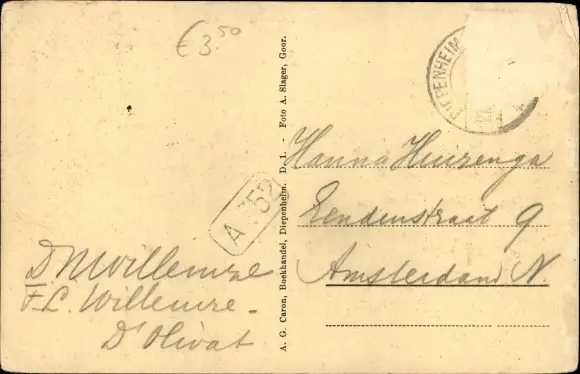 € 3.50
DIEPENHEIM
A. G. Caron, Boekhandel, Diepenheim. D. 1. - Foto A. Slager, Goor.
Hanna Huizenga
Eendenstraat 9
Amsterdam N.
A 352
DNWillemze
F.L. Willemze-
D'Olivat